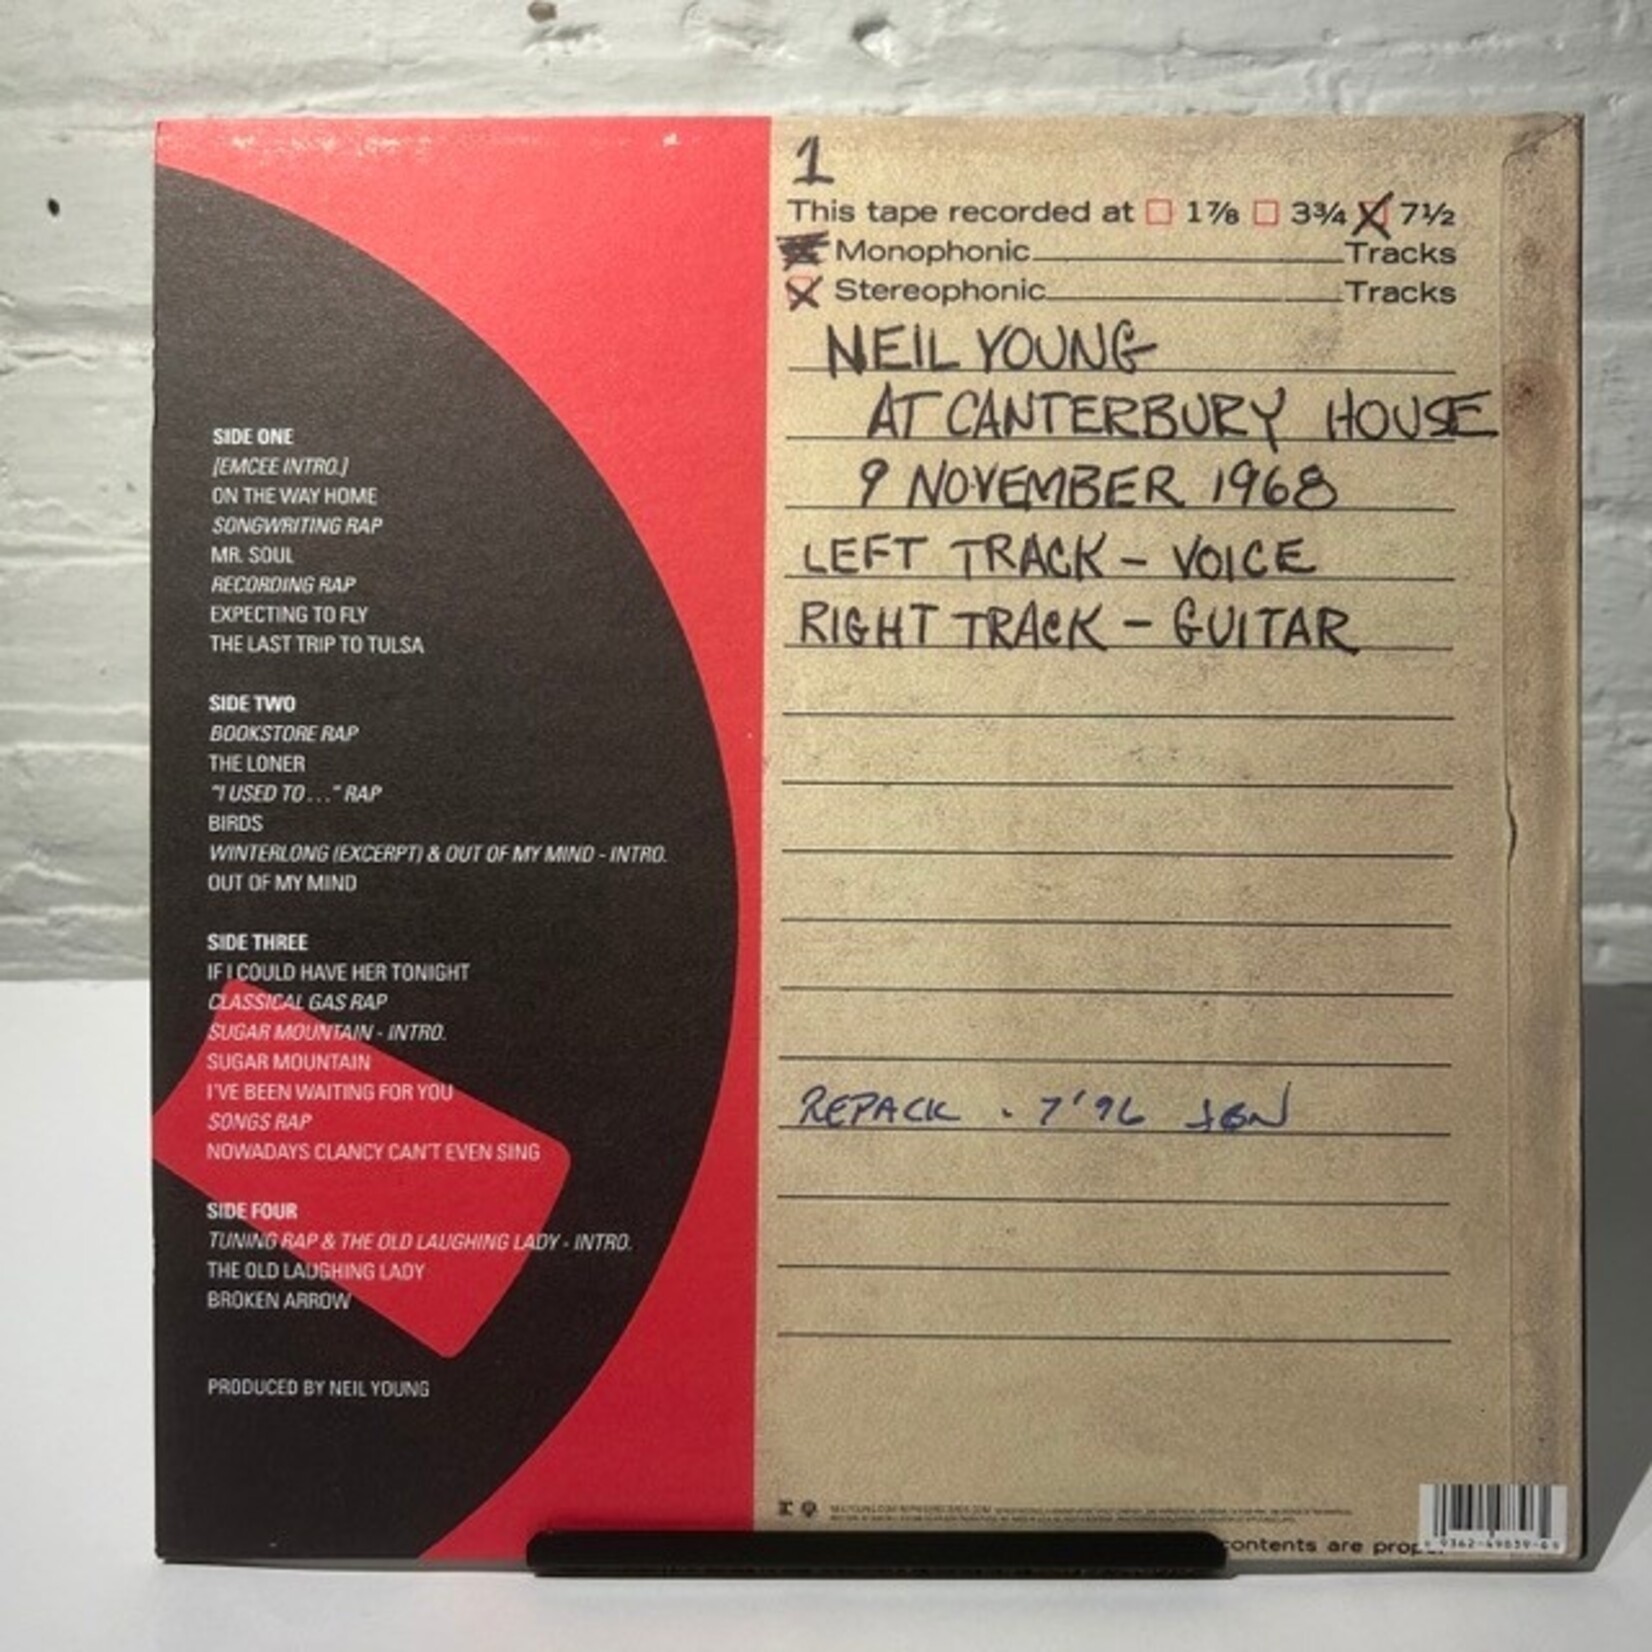 SIDE ONE
[EMCEE INTRO.]
ON THE WAY HOME
SONGWRITING RAP
MR. SOUL
RECORDING RAP
EXPECTING TO FLY
THE LAST TRIP TO TULSA
SIDE TWO
BOOKSTORE RAP
THE LONER
"I USED TO..." RAP
BIRDS
WINTERLONG (EXCERPT) & OUT OF MY MIND - INTRO.
OUT OF MY MIND
SIDE THREE
IF I COULD HAVE HER TONIGHT
CLASSICAL GAS RAP
SUGAR MOUNTAIN - INTRO.
SUGAR MOUNTAIN
I'VE BEEN WAITING FOR YOU
SONGS RAP
NOWADAYS CLANCY CAN'T EVEN SING
SIDE FOUR
TUNING RAP & THE OLD LAUGHING LADY - INTRO.
THE OLD LAUGHING LADY
BROKEN ARROW
PRODUCED BY NEIL YOUNG
1
This tape recorded at 1⅞ 3¾ 7½
Monophonic Tracks
Stereophonic Tracks
NEIL YOUNG
AT CANTERBURY HOUSE
9 NOVEMBER 1968
LEFT TRACK - VOICE
RIGHT TRACK - GUITAR
REPACK . 7'96
contents are